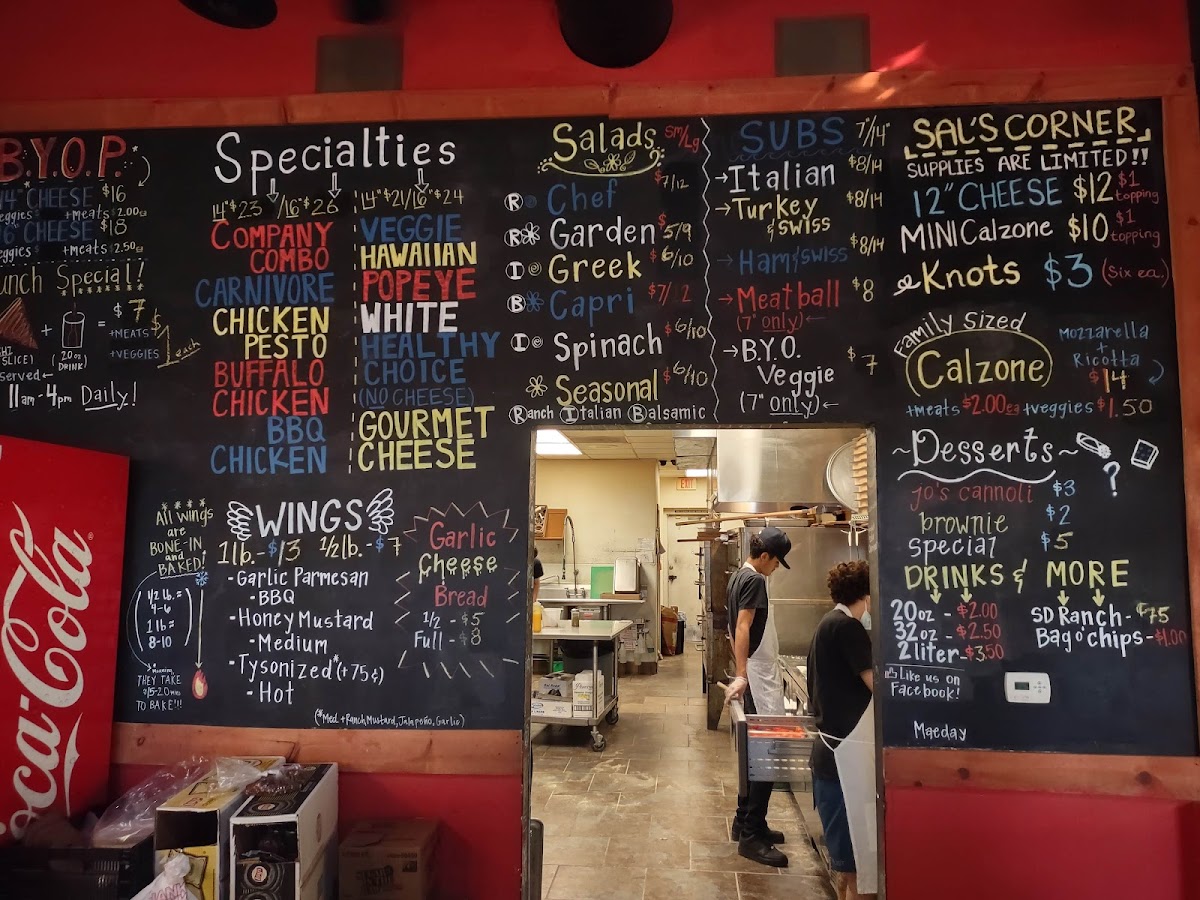 B.Y.O.P.
14" CHEESE $16
veggies +meats 2.00ea
16" CHEESE $18
veggies +meats 2.50ea
Lunch Special!
+ = $7
SLICE) (20oz DRINK)
+MEATS $1 each
+VEGGIES
served
11am-4pm Daily!
Specialties
14" $23 / 16" $26
COMPANY COMBO
CARNIVORE
CHICKEN PESTO
BUFFALO CHICKEN
BBQ CHICKEN
14" $21/16" $24
VEGGIE
HAWAIIAN
POPEYE
WHITE
HEALTHY CHOICE
(NO CHEESE)
GOURMET CHEESE
All wings
are
BONE-IN
and
BAKED!
1/2 lb. =
4-6
1 lb =
8-10
THEY TAKE
15-20 MINS
TO BAKE"!!
WINGS
1lb. - $13 1/2lb. - $7
- Garlic Parmesan
- BBQ
- Honey Mustard
- Medium
- Tysonized* (+75¢)
- Hot
(*Med + Ranch Mustard, Jalapeño, Garlic)
Garlic
Cheese
Bread
1/2 - $5
Full - $8
Salads Sm/Lg
R Chef $7/12
R Garden $5/9
I Greek $6/10
B Capri $7/12
I Spinach $6/10
Seasonal $6/10
Ranch Italian Balsamic
SUBS 7"/14"
→Italian $8/14
→Turkey & Swiss $8/14
→Ham & Swiss $8/14
→Meatball $8
(7" only)←
→B.Y.O. Veggie $7
(7" only)←
SAL'S CORNER
SUPPLIES ARE LIMITED!!
12" CHEESE $12 $1 topping
MINI Calzone $10 $1 topping
Knots $3 (six ea.)
Family Sized
Calzone
Mozzarella
+
Ricotta
$14
+meats $2.00ea +veggies $1.50
~Desserts~
?
Jo's cannoli $3
brownie $2
special $5
DRINKS & MORE
20oz - $2.00
32oz - $2.50
2 liter - $3.50
SD Ranch - $.75
Bag o' chips - $1.00
Like us on
Facebook!
Maeday
Coca-Cola
EXIT